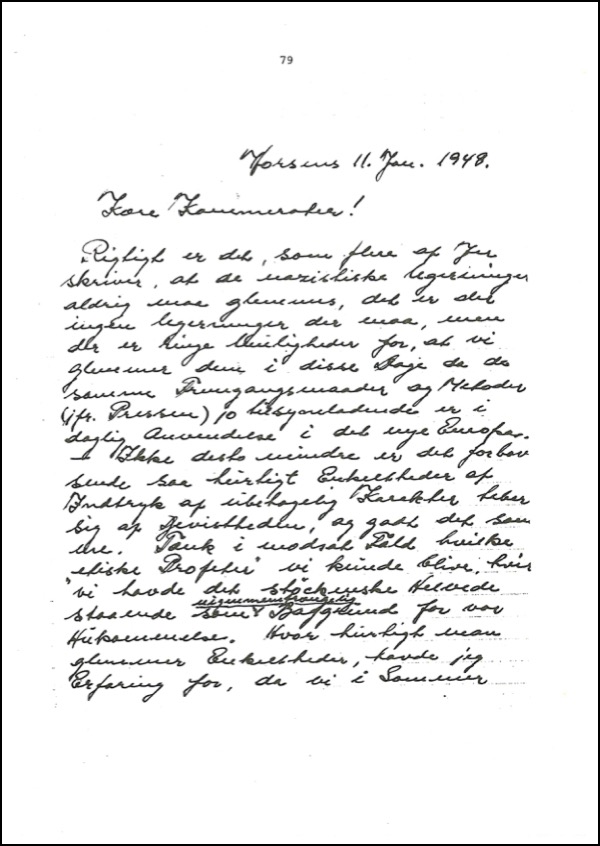 79
Horsens 11. Jan. 1948.
Kære Kammerater!
Rigtigt er det, som flere af Jer
skriver, at de nazistiske Ugerninger
aldrig maa glemmes, det er der
ingen Ugerninger der maa, men
der er ringe Muligheder for, at vi
glemmer dem i disse Dage da de
samme Fremgangsmaader og Metoder
(jfr. Pressen) jo tilsyneladende er i
daglig Anvendelse i det nye Europa.
– Ikke desto mindre er det forbav
sende saa hurtigt Enkeltheder af
Indtryk af ubehagelig Karakter taber
sig af Bevistheden, og godt det sam
me. Tænk i modsat Fald hvilke
"etiske Profeter" vi kunde blive, hvis
vi havde det stöckenske Helvede
uigennemtrængelig
staaende som Baggrund for vor
Hukommelse. Hvor hurtigt man
glemmer Enkeltheder, havde jeg
Erfaring for, da vi i Sommer